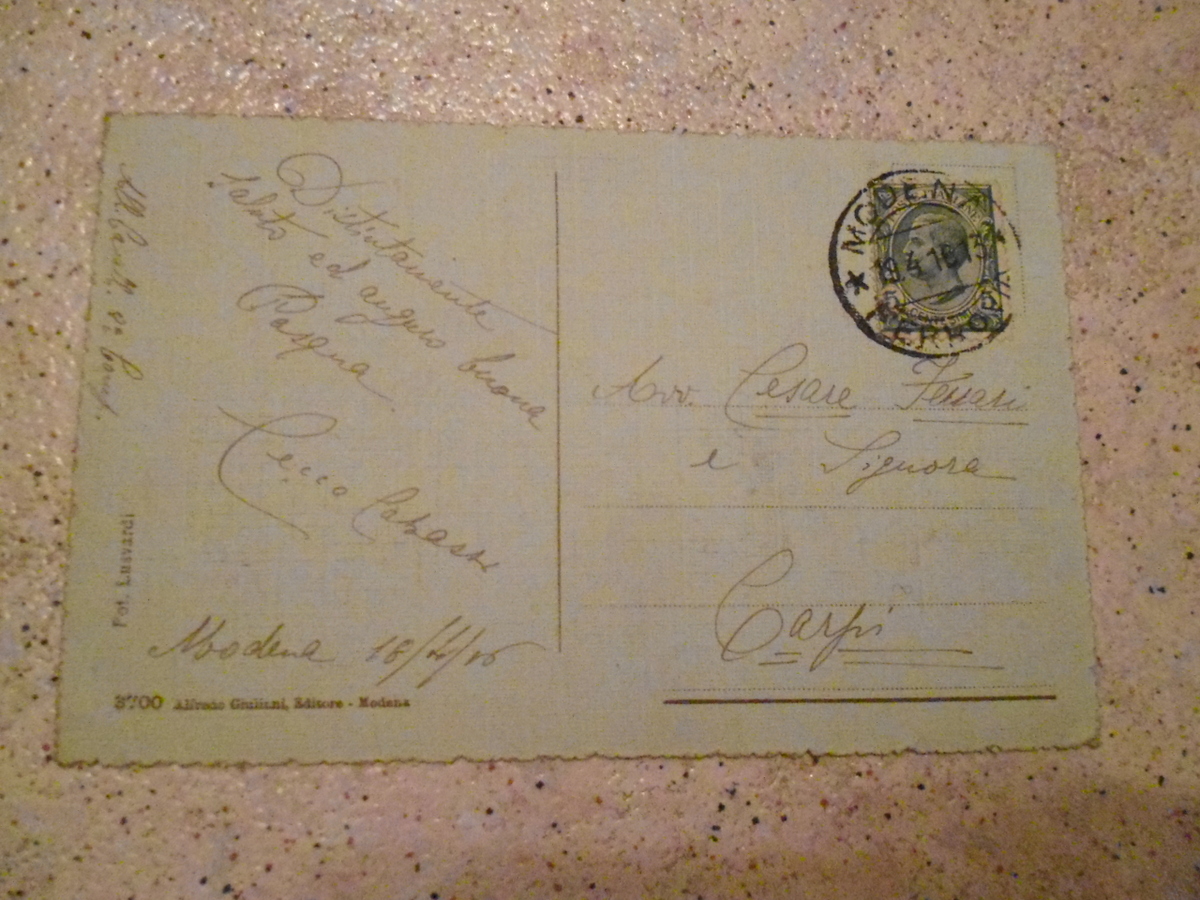 Distintamente
saluto ed auguro buona
Pasqua
Cecco Cabassi
Modena 18/4/16
Fot. Lusvardi
3700 Alfredo Giuliani, Editore - Modena
MODENA
19.4.16
FERROVIA
Avv. Cesare Ferrari
e Signora
Carpi